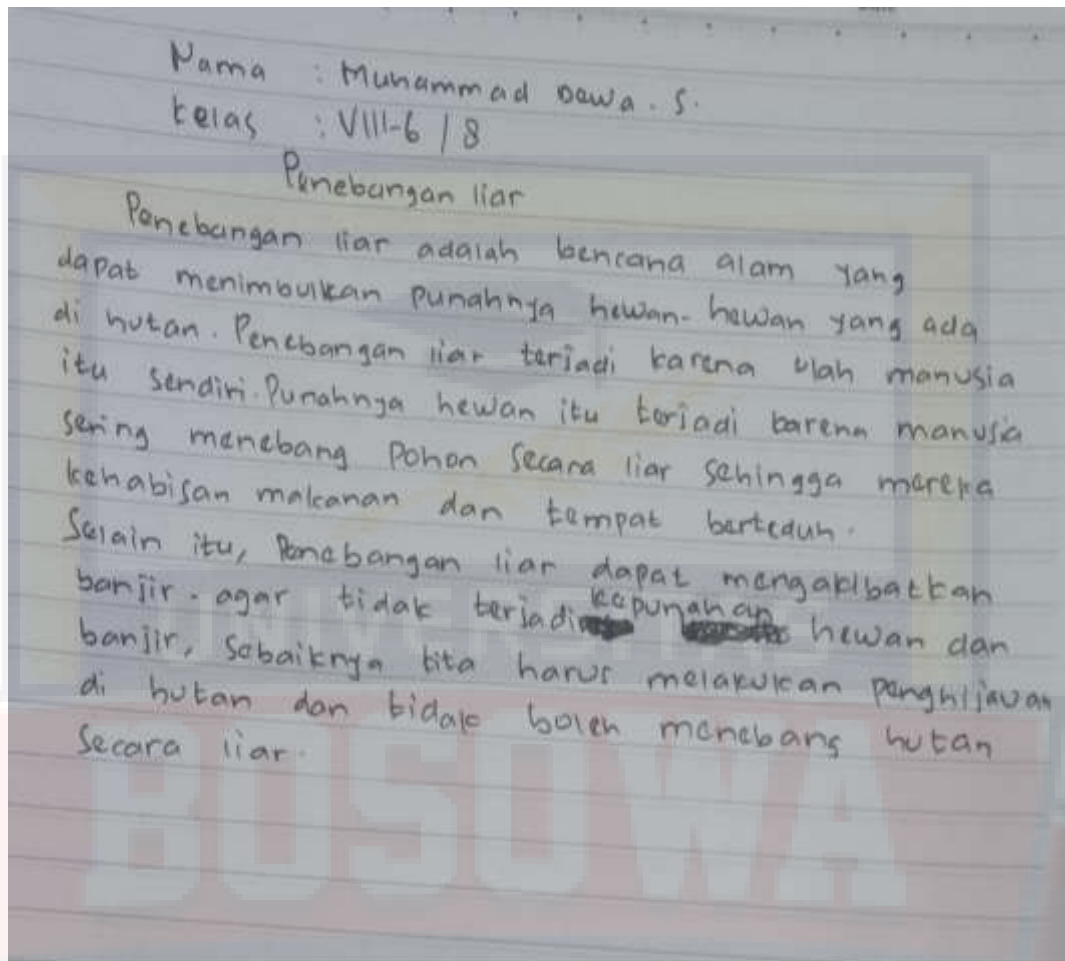 Nama : Muhammad Dewa . S.
Kelas : VIII-6 / 8
Penebangan liar
Penebangan liar adalah bencana alam yang
dapat menimbulkan punahnya hewan-hewan yang ada
di hutan. Penebangan liar terjadi karena ulah manusia
itu sendiri. Punahnya hewan itu terjadi karena manusia
sering menebang Pohon secara liar sehingga mereka
kehabisan makanan dan tempat berteduh.
Selain itu, Penebangan liar dapat mengakibatkan
banjir. agar tidak terjadi kepunahan hewan dan
banjir, sebaiknya kita harus melakukan penghijauan
di hutan dan tidak boleh menebang hutan
secara liar.
UNIVERSITAS
BOSOWA